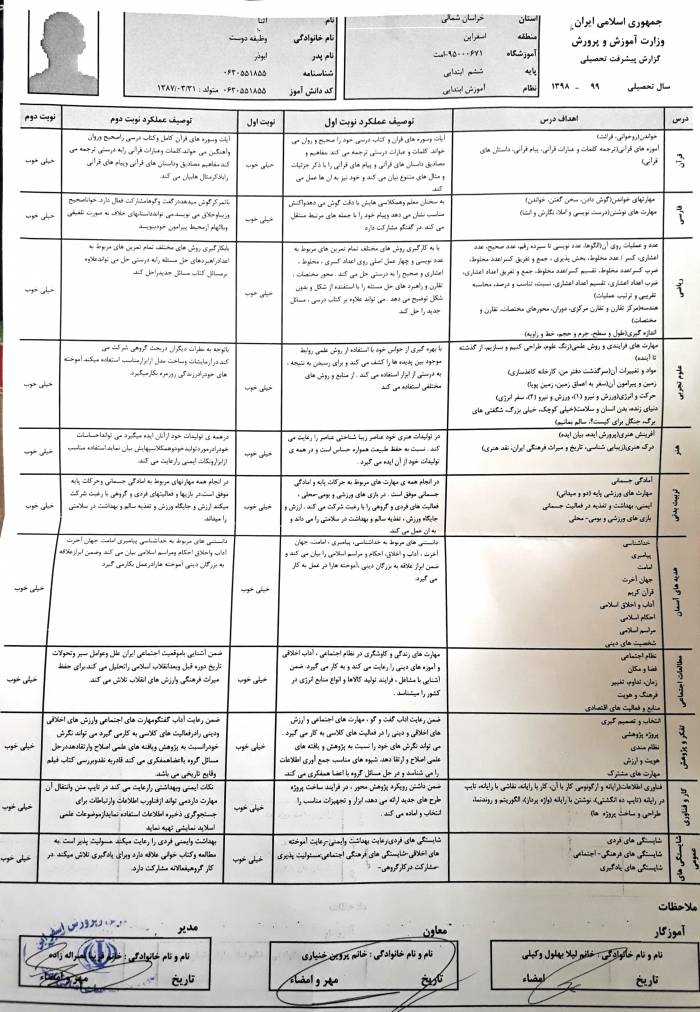 جمهوری اسلامی ایران
وزارت آموزش و پرورش
گزارش پیشرفت تحصیلی
سال تحصیلی ۹۹ - ۱۳۹۸
استان خراسان شمالی
منطقه اسفراین
آموزشگاه ۹۵۰۰۰۶۷۱-امت
پایه ششم ابتدایی
نظام آموزش ابتدایی
نام آتنا
نام خانوادگی وظیفه دوست
نام پدر ابوذر
شناسنامه ۰۶۳۰۵۵۱۸۵۵
کد دانش آموز ۰۶۳۰۵۵۱۸۵۵ متولد : ۱۳۸۷/۰۳/۳۱
درس اهداف درس توصیف عملکرد نوبت اول نوبت اول توصیف عملکرد نوبت دوم نوبت دوم
قرآن
خواندن(روخوانی، قرائت)
آموزه های قرآنی(ترجمه کلمات و عبارات قرآنی، پیام قرآنی، داستان های
قرآنی)
آیات وسوره های قران و کتاب درسی خود را صحیح و روان می
خواند. کلمات و عبارات درستی ترجمه می کند مفاهیم و
مصادیق داستان های قرآنی و پیام های قرآنی را با ذکر جزئیات
و مثال های متنوع بیان می کند و خود نیز به آن ها عمل می
کند.
خیلی خوب
آیات وسوره های قرآن کامل وکتاب درسی راصحیح وروان
وآهنگین می خواند.کلمات وعبارات قرآنی رابه درستی ترجمه می
کند.مفاهیم مصادیق وداستان های قرآنی وپیام های قرآنی
راباذکرمثال هابیان می کند.
خیلی خوب
فارسی
مهارتهای خواندن(گوش دادن، سخن گفتن، خواندن)
مهارت های نوشتن(درست نویسی و املا، نگارش و انشا)
به سخنان معلم وهمکلاسی هایش با دقت گوش می دهدواکنش
مناسب نشان می دهد وپیام خود را با جمله های مرتبط منتقل
می کند .در گفتگو مشارکت دارد
خیلی خوب
خیلی خوب
ریاضی
عدد و عملیات روی آن(الگوها، عدد نویسی تا سیزده رقم، عدد صحیح، عدد
اعشاری، کسر / عدد مخلوط، بخش پذیری ، جمع و تفریق کسر/عدد مخلوط،
ضرب کسر/عدد مخلوط، تقسیم کسر/عدد مخلوط، جمع و تفریق اعداد اعشاری،
ضرب اعداد اعشاری، تقسیم اعداد اعشاری، نسبت، تناسب و درصد، محاسبه
تقریبی و ترتیب عملیات)
هندسه(مرکز تقارن و تقارن مرکزی، دوران، محورهای مختصات، تقارن و
مختصات)
اندازه گیری(طول و سطح، جرم و حجم، خط و زاویه)
با به کارگیری روش های مختلف تمام تمرین های مربوط به
عدد نویسی و چهار عمل اصلی روی اعداد کسری ، مخلوط ،
اعشاری و صحیح را به درستی حل می کند . محور مختصات ،
تقارن و راهبرد های حل مسئله را با استفنده از شکل و بدون
شکل توضیح می دهد . می تواند علاوه بر کتاب درسی ، مسائل
جدید را حل کند
خیلی خوب
بابکارگیری روش های مختلف تمام تمرین های مربوط به
اعدادراهبردهای حل مسئله رابه درستی حل می کندعلاوه
برمسائل کتاب مسائل جدیدراحل کند.
خیلی خوب
علوم تجربی
مهارت های فرایندی و روش علمی(زنگ علوم، طراحی کنیم و بسازیم، از گذشته
تا آینده)
مواد و تغییرات آن(سرگذشت دفتر من، کارخانه کاغذسازی)
زمین و پیرامون آن(سفر به اعماق زمین، زمین پویا)
حرکت و انرژی(ورزش و نیرو (۱)، ورزش و نیرو (۲)، سفر انرژی)
دنیای زنده، بدن انسان و سلامت(خیلی کوچک، خیلی بزرگ، شگفتی های
برگ، جنگل برای کیست؟، سالم بمانیم)
با بهره گیری از حواس خود با استفاده از روش علمی روابط
موجود بین پدیده ها را کشف می کند و برای رسیدن به نتیجه ،
به درستی از ابزار استفاده می کند . از منابع و روش های
مختلفی استفاده می کند
خیلی خوب
باتوجه به نظرات دیگران دربحث گروهی شرکت می
کند.درآزمایشات وساخت مدل ازابزارمناسب استفاده میکند.آموخته
های خودرادرزندگی روزمره بکارمیگیرد.
خیلی خوب
هنر
آفرینش هنری(پرورش ایده، بیان ایده)
درک هنری(زیبایی شناسی، تاریخ و میراث فرهنگی ایران، نقد هنری)
در تولیدات هنری خود عناصر زیبا شناختی عناصر را رعایت می
کند . نسبت به حفظ طبیعت همواره حساس است و در همه ی
تولیدات خود از آن ایده می گیرد .
خیلی خوب
درهمه ی تولیدات خود ازآنان ایده میگیرد می توانداحساسات
خودرادرموردتولیدخودوهمکلاسیهایش بیان نماید.استفاده مناسب
ازابزارونکات ایمنی رارعایت می کند.
خیلی خوب
تربیت بدنی
آمادگی جسمانی
مهارت های ورزشی پایه (دو و میدانی)
ایمنی، بهداشت و تغذیه در فعالیت جسمانی
بازی های ورزشی و بومی- محلی
در انجام همه ی مهارت های مربوط به حرکات پایه و آمادگی
جسمانی موفق است . در بازی های ورزشی و بومی-محلی ،
فعالیت های فردی و گروهی را با رغبت شرکت می کند . ارزش و
جایگاه ورزش ، تغذیه سالم و بهداشت در سلامتی را می داند و
به آن عمل می کند.
خیلی خوب
در انجام همه مهارتهای مربوط به آمادگی جسمانی وحرکات پایه
موفق است.در بازیها و فعالیتهای فردی و گروهی با رغبت شرکت
میکند ارزش و جایگاه ورزش و تغذیه سالم و بهداشت در سلامتی
را میداند.
خیلی خوب
هدیه های آسمان
خداشناسی
پیامبری
امامت
جهان آخرت
قرآن کریم
آداب و اخلاق اسلامی
احکام اسلامی
مراسم اسلامی
شخصیت های دینی
دانستنی های مربوط به خداشناسی، پیامبری ، امامت، جهان
آخرت ، آداب و اخلاق، احکام و مراسم اسلامی را بیان می کند و
ضمن ابراز علاقه به بزرگان دینی ،آموخته هارا در عمل به کار
می گیرد.
خیلی خوب
دانستنی های مربوط به خداشناسی پیامبری امامت جهان آخرت
آداب واخلاق احکام ومراسم اسلامی بیان می کند وضمن ابرازعلاقه
به بزرگان دینی آموخته هارادرعمل بکارمی گیرد
خیلی خوب
مطالعات اجتماعی
نظام اجتماعی
فضا و مکان
زمان، تداوم، تغییر
فرهنگ و هویت
منابع و فعالیت های اقتصادی
مهارت های زندگی و کاوشگری در نظام اجتماعی ، آداب اخلاقی
و آموزه های دینی را رعایت می کند و به کار می گیرد. ضمن
آشنایی با مشاغل ، فرایند تولید کالاها و انواع منابع انرژی در
کشور را میشناسد .
خیلی خوب
ضمن آشنایی باموقعیت اجتماعی ایران علل وعوامل سیر وتحولات
تاریخ دوره قبل وبعدانقلاب اسلامی راتحلیل می کند.برای حفظ
میراث فرهنگی وارزش های انقلاب تلاش می کند.
خیلی خوب
تفکر و پژوهش
انتخاب و تصمیم گیری
پروژه پژوهشی
نظام مندی
هویت و ارزش
مهارت های مشترک
ضمن رعایت آداب گفت و گو ، مهارت های اجتماعی و ارزش
های اخلاقی و دینی را در فعالیت های کلاسی به کار می گیرد .
می تواند نگرش های خود را نسبت به پژوهش و یافته های
علمی اصلاح و ارتقا دهد . شیوه های مناسب جمع آوری اطلاعات
را می شناسد و در حل مسائل گروه با اعضا همفکری می کند.
خیلی خوب
ضمن رعایت آداب گفتگومهارت های اجتماعی وارزش های اخلاقی
ودینی رادرفعالیت های کلاسی به کارمی گیرد می تواند نگرش
خودرانسبت به پژوهش ویافته های علمی اصلاح وارتقادهددرحل
مسائل گروه بااعضاهمفکری می کند قادربه نقدوبررسی کتاب فیلم
وقایع تاریخی می باشد.
خیلی خوب
کار و فناوری
فناوری اطلاعات(رایانه و ارگونومی کار با آن، کار با رایانه، نقاشی با رایانه، تایپ
در رایانه (تایپ ده انگشتی)، نوشتن با رایانه (واژه پرداز)، الگوریتم و روندنما،
طراحی و ساخت پروژه ها)
ضمن داشتن رویکرد پژوهش محور ، در فرایند ساخت پروژه
طرح های جدید ارائه می دهد، ابزار و تجهیزات مناسب را
انتخاب و آماده می کند .
خیلی خوب
نکات ایمنی وبهداشتی رارعایت می کند در تایپ متن وانتقال آن
مهارت داردمی تواند ازفناوری اطلاعات وارتباطات برای
جستجوگری ذخیره اطلاعات استفاده نمایدازموضوعات علمی
اسلاید نمایشی تهیه نماید
خیلی خوب
شایستگی های عمومی
شایستگی های فردی
شایستگی های فرهنگی- اجتماعی
شایستگی های یادگیری
شایستگی های فردی،رعایت بهداشت وایمنی-رعایت آموخته
های اخلاقی-شایستگی های فرهنگی اجتماعی،مسئولیت پذیری
-مشارکت درکارگروهی-
خیلی خوب
بهداشت وایمنی فردی را رعایت میکند مسولیت پذیر است به
مطالعه وکتاب خوانی علاقه دارد وبرای یادگیری تلاش میکند .در
کار گروهیفعالانه مشارکت دارد.
خیلی خوب
ملاحظات
آموزگار
نام و نام خانوادگی : خانم لیلا بهلول وکیلی
تاریخ امضاء
معاون
نام و نام خانوادگی : خانم پروین خنیاری
تاریخ مهر و امضاء
مدیر
نام و نام خانوادگی : خانم
تاریخ مهر و امضاء